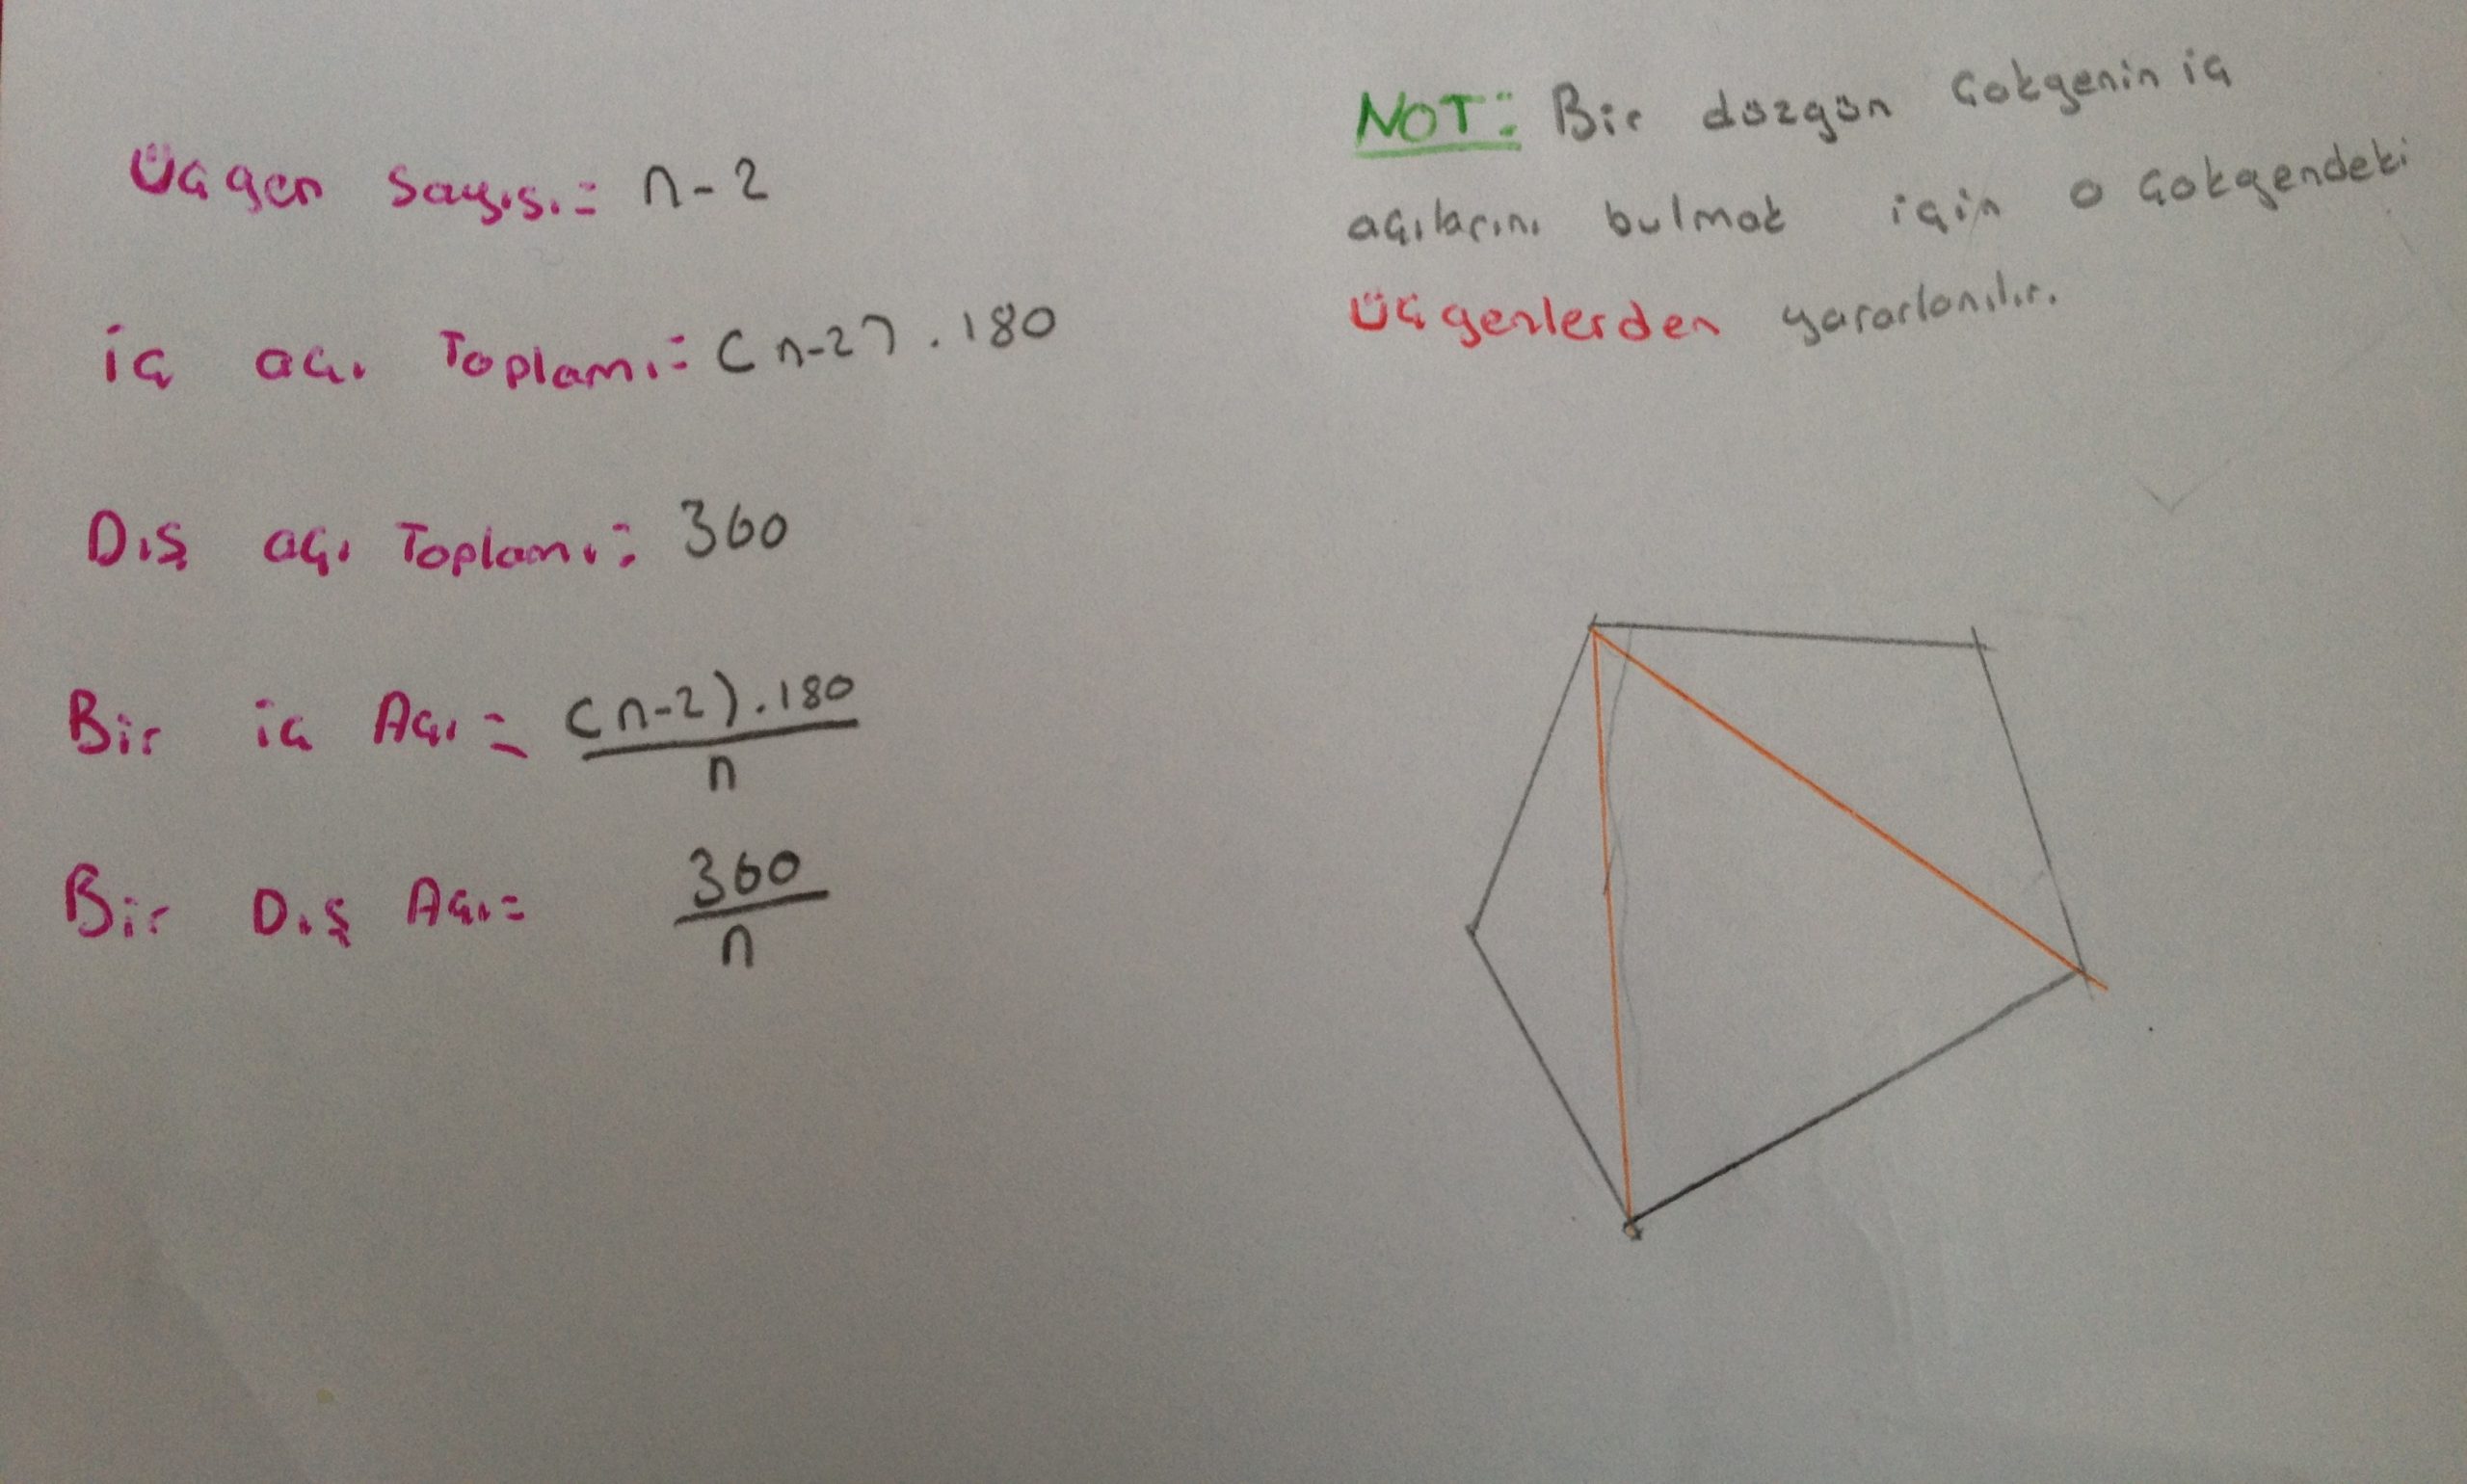 Üçgen Sayısı = n-2
iç açı Toplamı = (n-2).180
Dış açı Toplamı: 360
Bir iç Açı = (n-2).180
n
Bir Dış Açı = 360
n
NOT: Bir düzgün Çokgenin iç
açılarını bulmak için o Çokgendeki
Üçgenlerden yararlanılır.